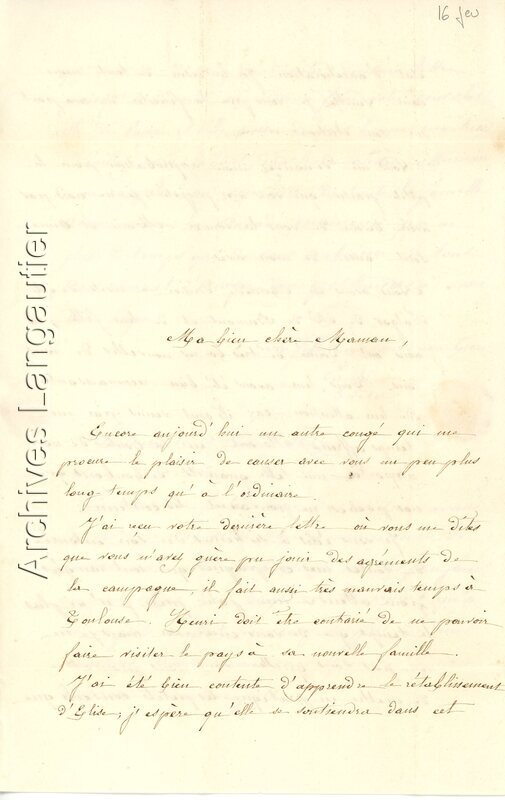 16 fev
Archives Langautier
Ma bien chère Maman,
Encore aujourd'hui un autre congé qui me
procure le plaisir de causer avec vous un peu plus
long temps qu'à l'ordinaire.
J'ai reçu votre dernière lettre où vous me dites
que vous n'avez guère pu jouir des agréments de
la campagne, il fait aussi très mauvais temps à
Toulouse. Henri doit être contrarié de ne pouvoir
faire visiter le pays à sa nouvelle famille.
J'ai été bien contente d'apprendre le rétablissement
d'Elise; j'espère qu'elle se soutiendra dans cet